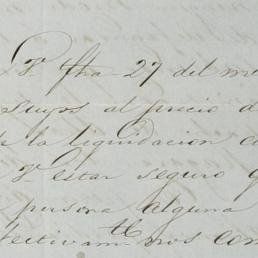 P. fha 27 del me
suyos al precio d
la liquidacion co
Y estar seguro q
persona alguna
nos com